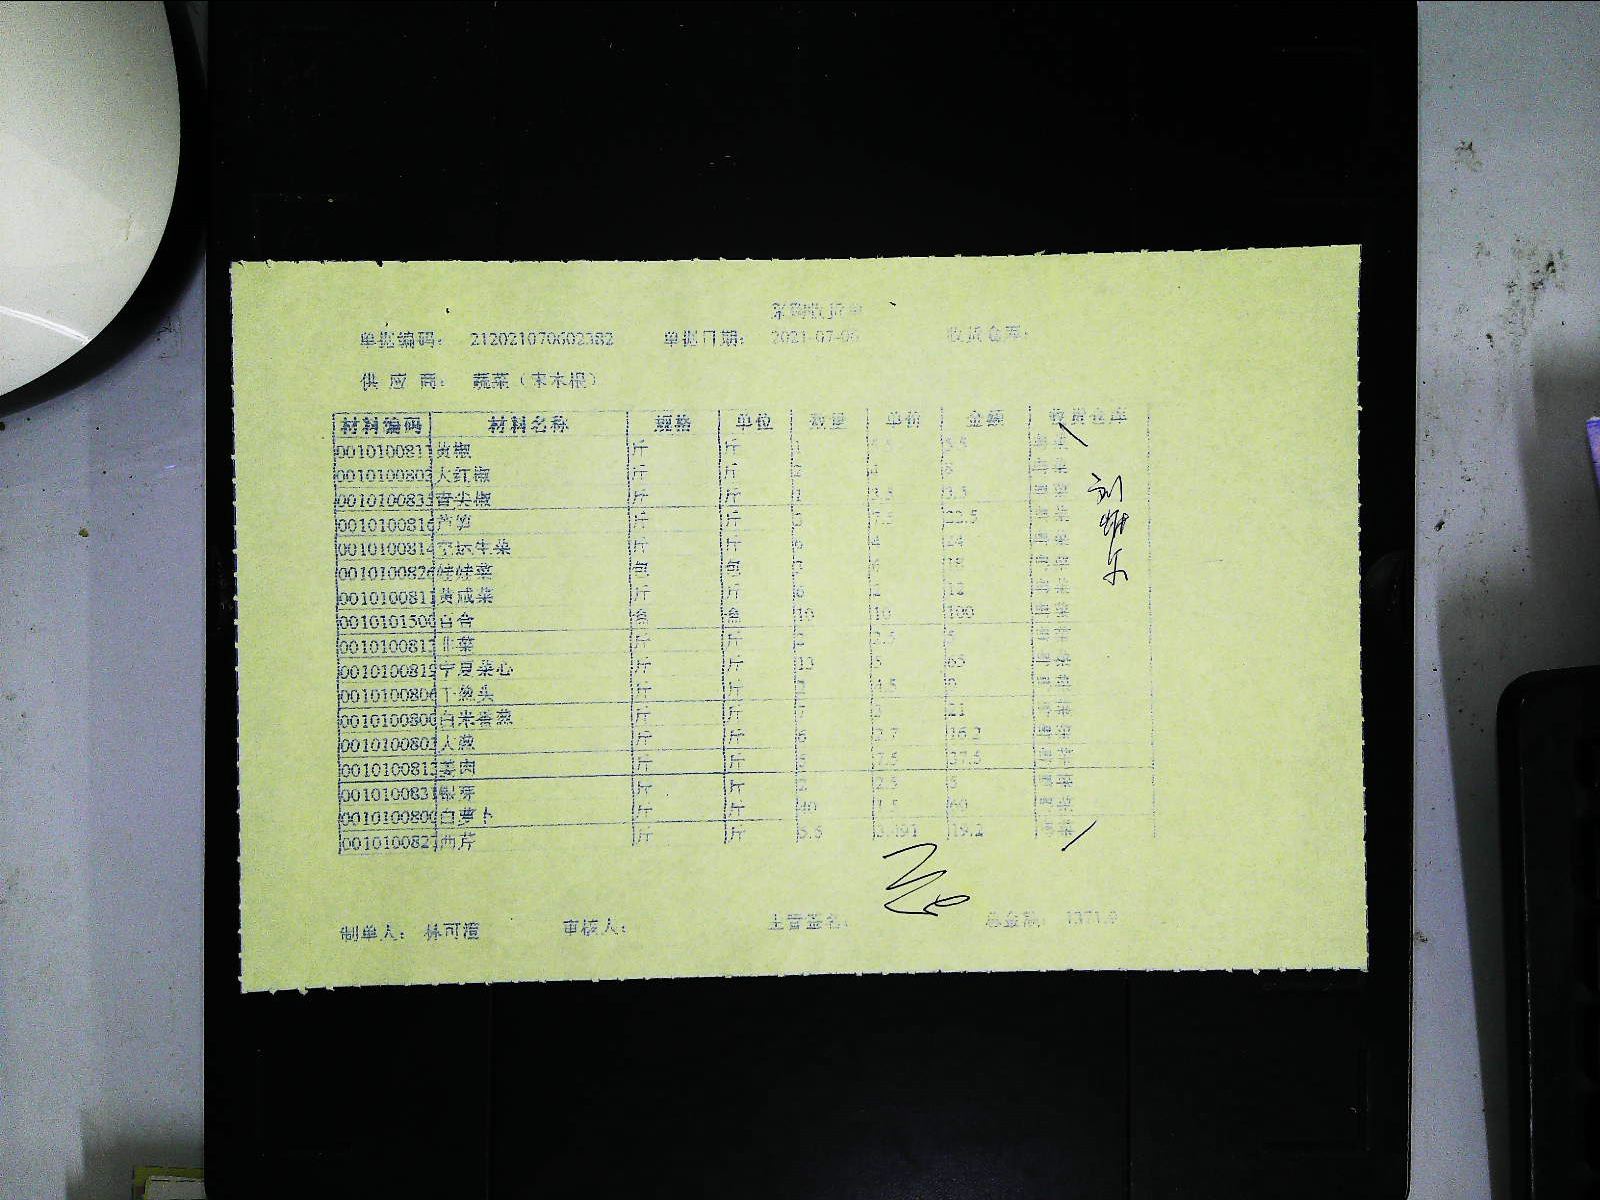 采购收货单
单据编码： 212021070602382 单据日期： 2021-07-06 收货仓库：
供 应 商： 蔬菜（宋木根）
材料编码 材料名称 规格 单位 数量 单价 金额 收货仓库
0010100811 黄椒 斤 斤 5.5
0010100803 大红椒 斤 斤 2 4 8
0010100833 青尖椒 斤 斤 1 3.5 3.5
0010100816 芦笋 斤 斤 3 7.5 22.5
0010100814 空运生菜 斤 斤 6 4 24
0010100826 娃娃菜 包 包 3 6 18
0010100811 黄咸菜 斤 斤 6 2 12
0010101500 百合 10 10 100
0010100813 韭菜 斤 斤 2 2.5 5
0010100819 宁夏菜心 斤 斤 13 5 65
0010100806 干葱头 斤 斤 2 4.5 9
0010100800 白米香葱 斤 斤 7 3 21
0010100803 大葱 斤 斤 6 2.7 16.2
0010100813 姜肉 斤 斤 5 7.5 37.5
0010100831 银芽 斤 斤 2 2.5 5
0010100800 白萝卜 斤 斤 40 1.5 60
0010100827 西芹 斤 斤 5.5 3.491 19.2
制单人： 林可 审核人： 主管签名： 总金额： 1371.9